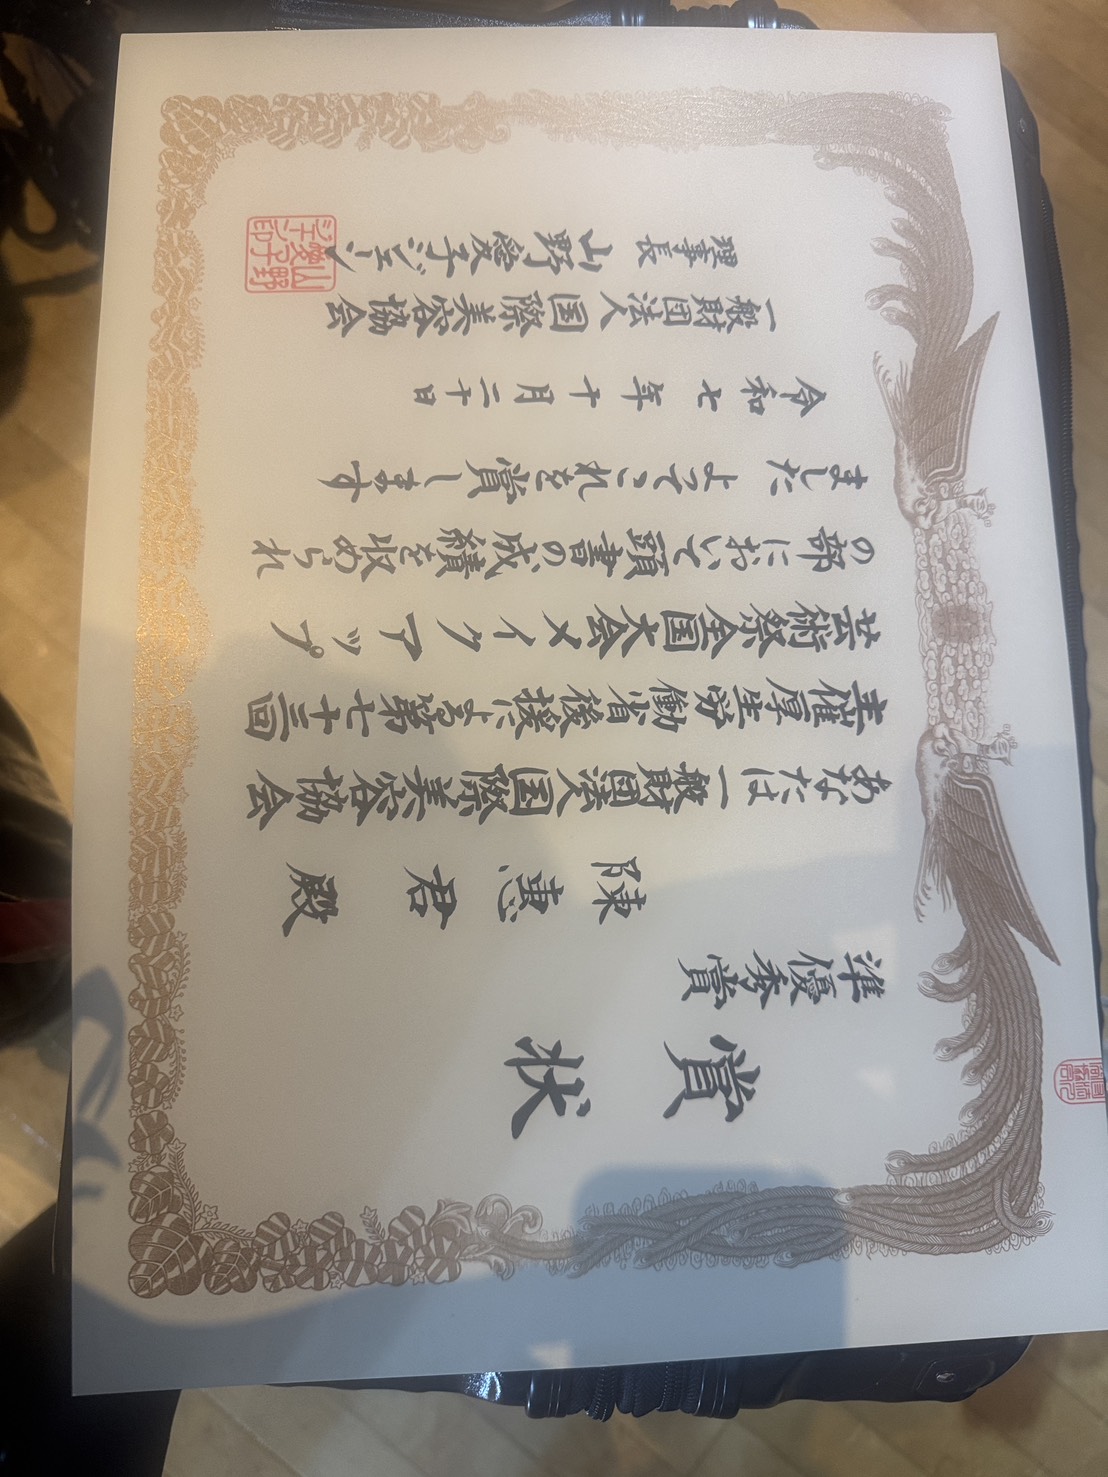 賞状
準優秀賞
陳惠君殿
あなたは一般財団法人国際美容協会
主催厚生労働省後援による第七十三回
芸術祭全国大会メイクアップ
の部において頭書の成績を収められ
ました よってこれを賞します
令和七年十月二十日
一般財団法人国際美容協会
理事長 山野愛子ジェーン
山野愛子ジェーン印